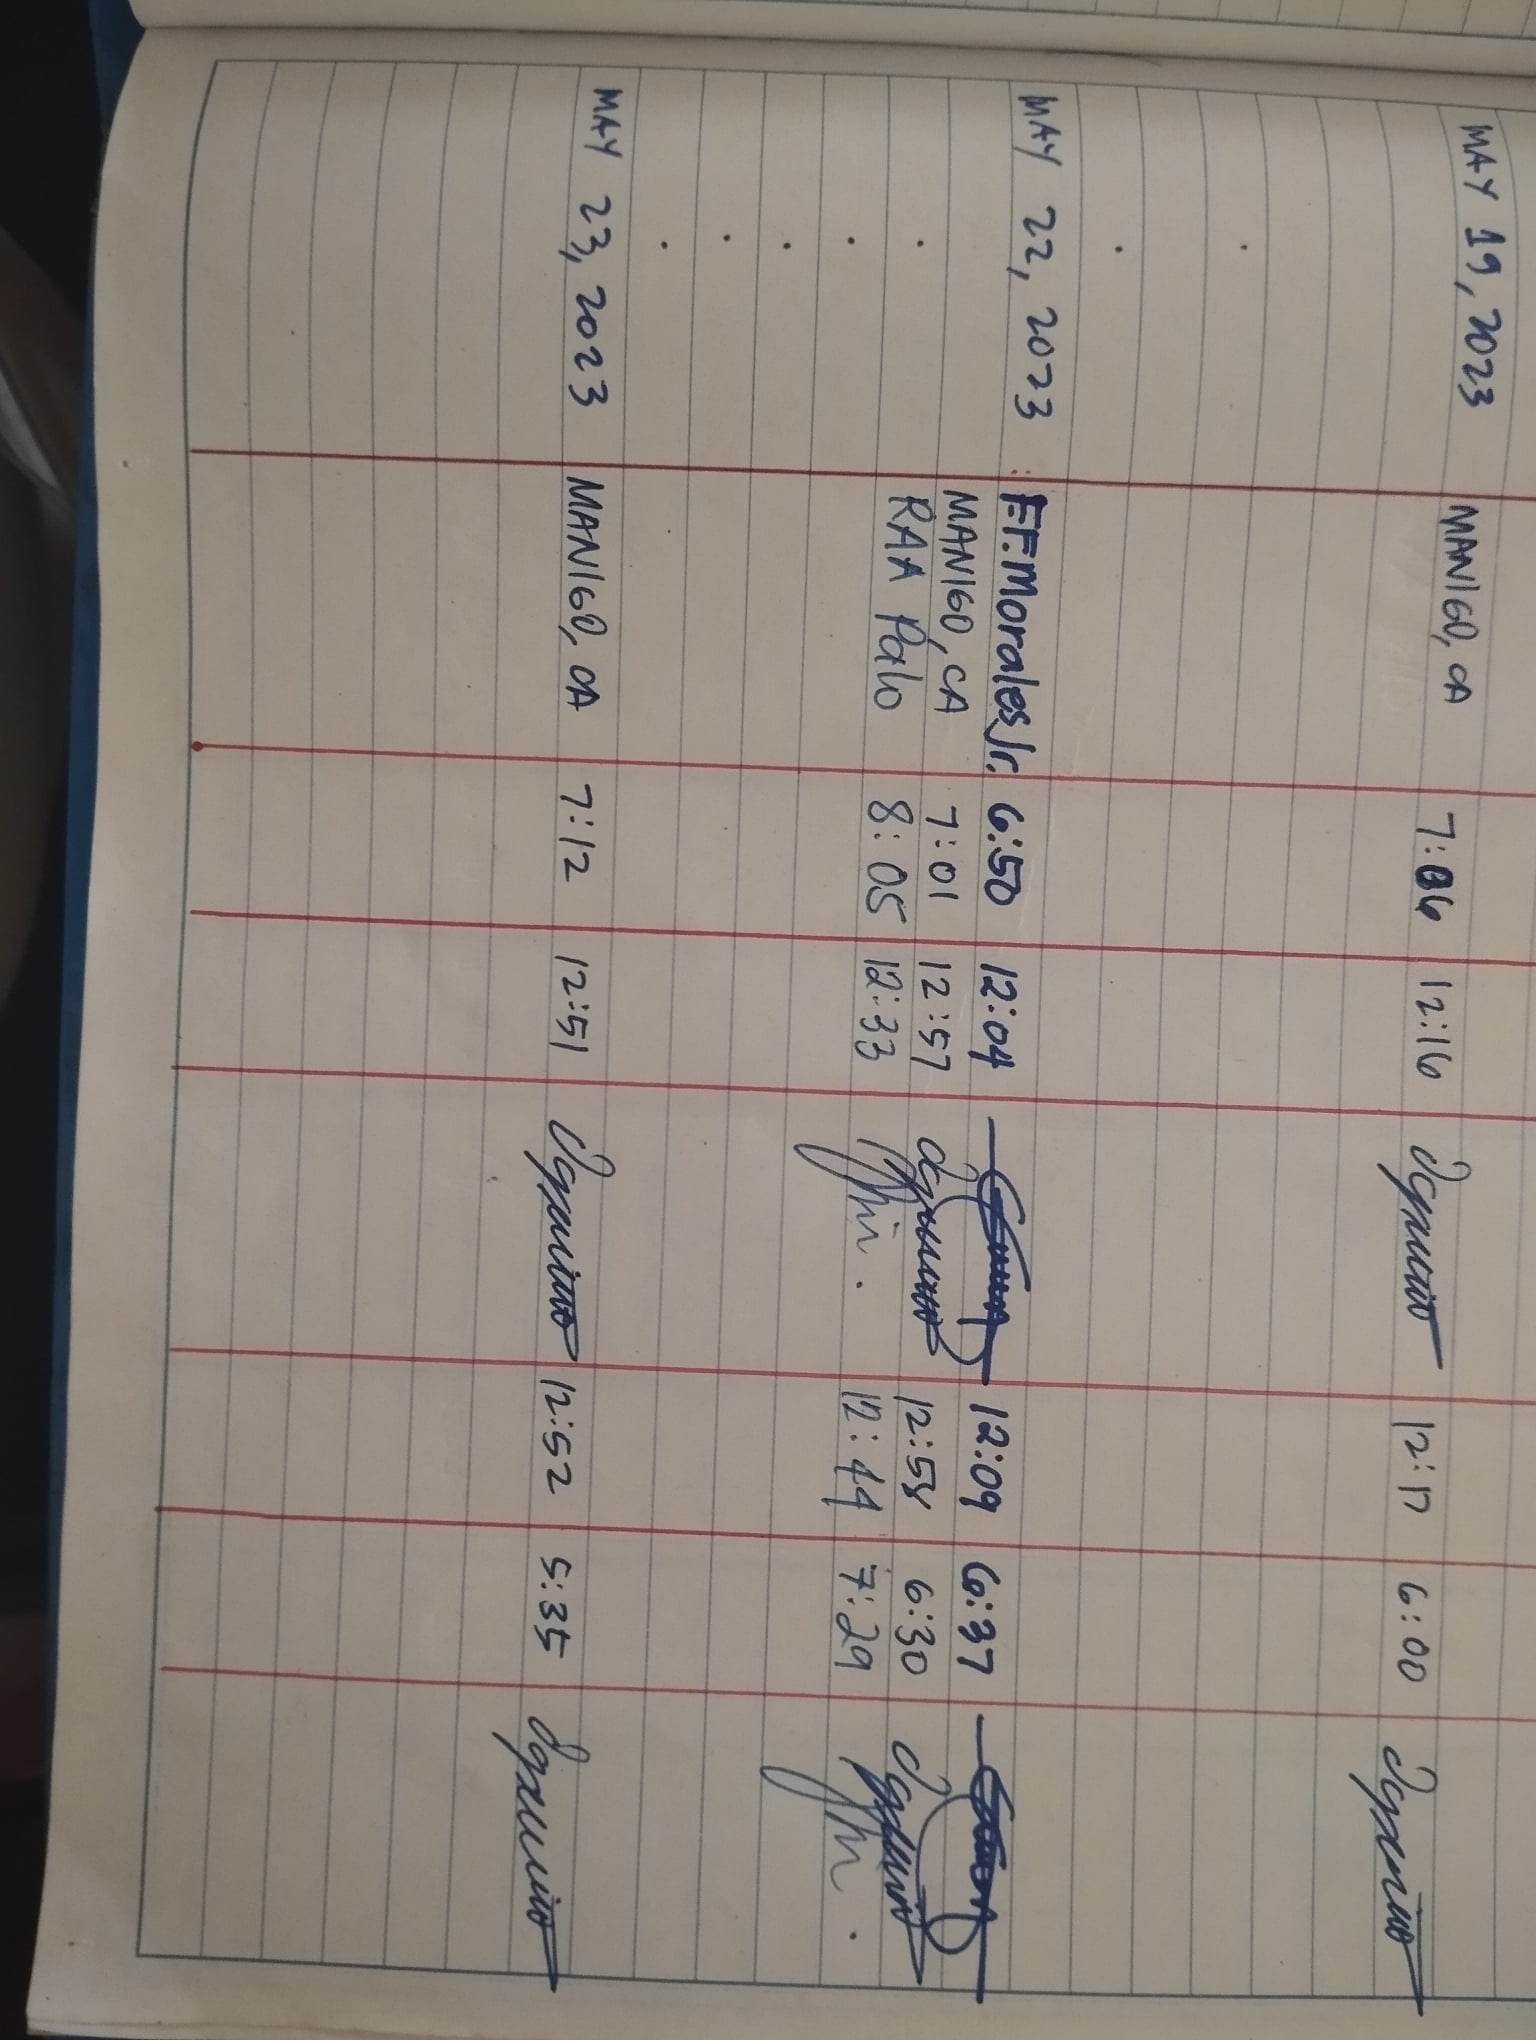 MAY 19, 2023 MANIGO, CA 7:06 12:16 12:17 6:00
MAY 22, 2023 : F.F. Morales Jr. 6:50 12:04 12:09 6:37
MANIGO, CA 7:01 12:57 12:58 6:30
RAA Palo 8:05 12:33 12:44 7:29
MAY 23, 2023 MANIGO, CA 7:12 12:51 12:52 5:35